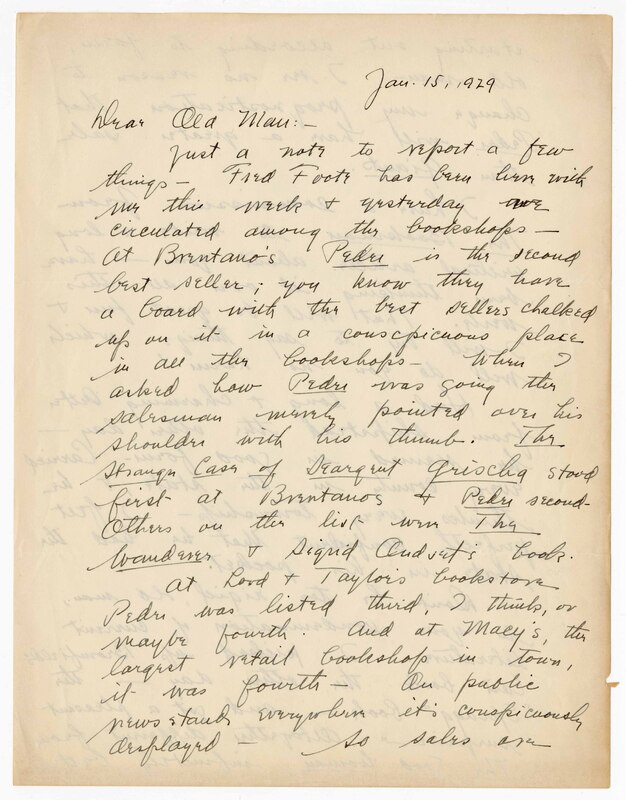 Jan. 15, 1929
Dear Old Man:-
Just a note to report a few
things - Fred Foote has been here with
me this week & yesterday we
circulated among the bookshops -
At Brentano's Pedri is the second
best seller; you know they have
a board with the best sellers chalked
up on it in a conscpicuous place
in all the bookshops - When I
asked how Pedri was going the
salesman merely pointed over his
shoulder with his thumb. The
Strange Case of Seargent Grischa stood
first at Brentanos & Pedri second -
Others on the list were The
Wanderer & Sigrid Undset's book.
At Lord & Taylor's bookstore
Pedri was listed third, I think, or
maybe fourth. And at Macy's, the
largest retail bookshop in town,
it was fourth - On public
newsstands everywhere it's conspicuously
desplayed - So sales are